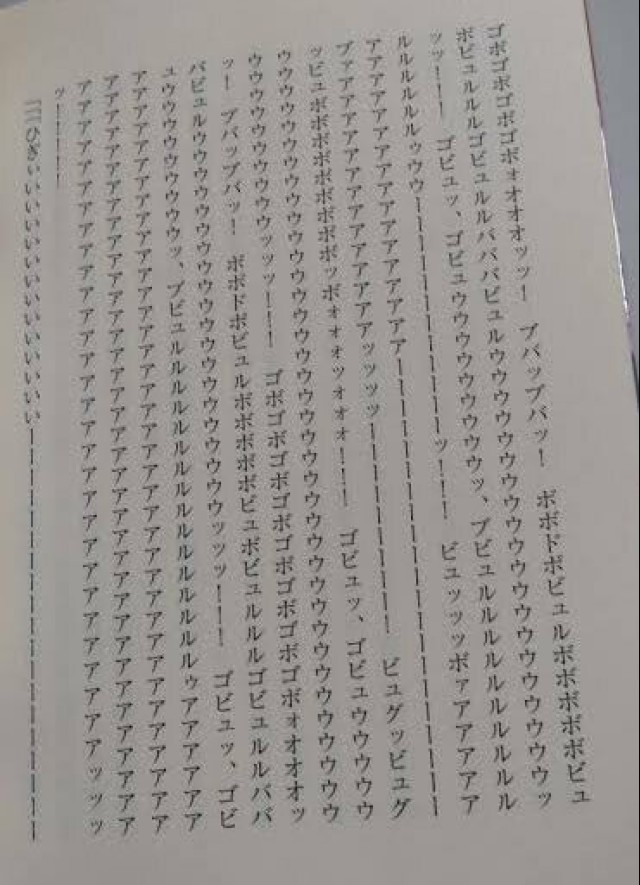 ゴボゴボゴボゴボォオオオッッ！　ブバップバッ！　ボボドボビュルボボボボボビュ
ボビュルルルゴビュルルババババビュルウウウウウウウウウウウウウウウウウウウウッ
ッッ！――！　ゴビュッ、ゴビュウウウウウウウウウウッ、ブビュルルルルルルルルルル
ルルルルルルルゥウウ――――――――――――ッ！――！　ビュッッッボァアアアアアア
アアアアアアアアアアアアアアアアアア――――――――――――――――――――――
ブァアアアアアアアアアアアアアアアッッッッ――――――――――！　ビュグッビュグ
ッビュボボボボボボボボボボッボォオオッオオオ！――！　ゴビュッ、ゴビュウウウウウ
ウウウウウウウウウウウウウウウウウウウウウウウウウウウウウウウウウウウウウウ
ウウウウウウウウウウウウッッッ！――！　ゴボゴボゴボゴボゴボゴボゴボゴボォオオオオッ
ッ！　ブバップバッ！　ボボドボビュルボボボボボビュボビュルルルルゴビュルルババ
バビュルウウウウウウウウウウウウウウウウウウウウウウウッッッ！――！　ゴビュッ、ゴビ
ュウウウウウウウウウウッ、ブビュルルルルルルルルルルルルルルルルルゥアアアアアア
アアアアアアアアアアアアアアアアアアアアアアアアアアアアアアアアアアアアアア
アアアアアアアアアアアアアアアアアアアアアアアアアアアアアアアアアアアアアア
アアアアアアアアアアアアアアアアアアアアアアアアアアアアアアアアアアアッッッ
ッ！――――
「「ひぎぃいいいいいいいいいいいいいい――――――――――――――――――――